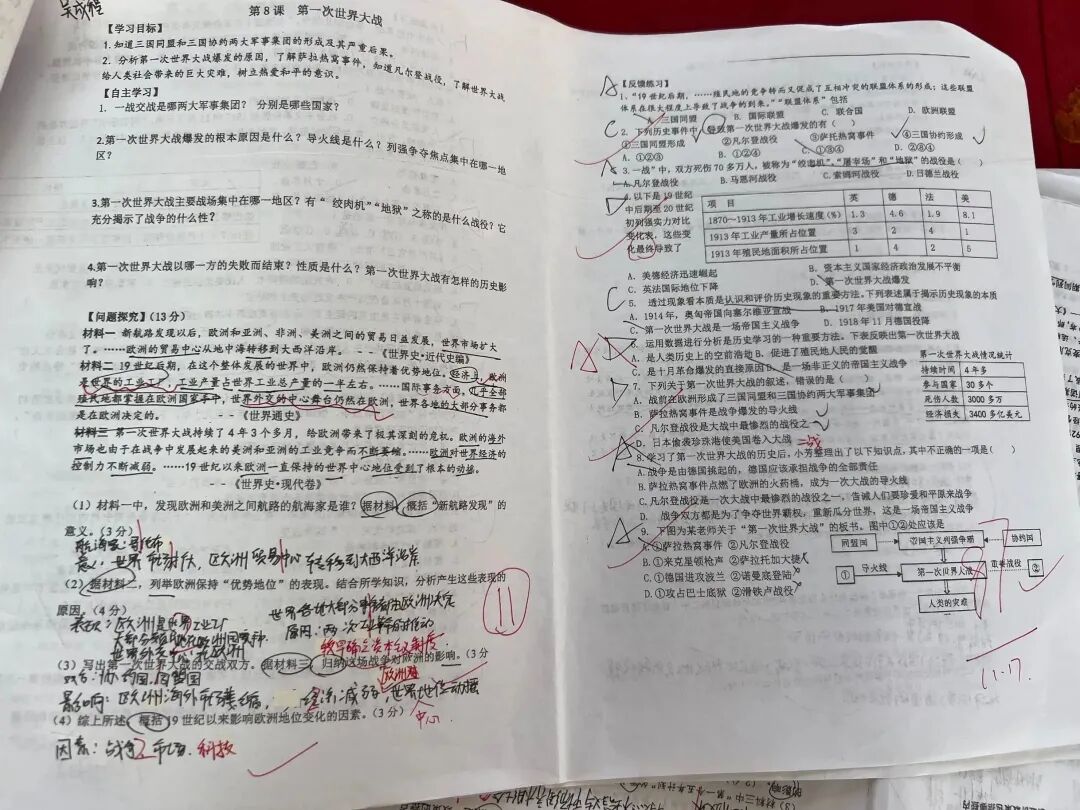 吴成程
第8课 第一次世界大战
【学习目标】
1. 知道三国同盟和三国协约两大军事集团的形成及其严重后果。
2. 分析第一次世界大战爆发的原因，了解萨拉热窝事件，知道凡尔登战役，了解世界大战
给人类社会带来的巨大灾难，树立热爱和平的意识。
【自主学习】
1. 一战交战是哪两大军事集团？ 分别是哪些国家？
2.第一次世界大战爆发的根本原因是什么？导火线是什么？列强争夺焦点集中在哪一地
区？
3.第一次世界大战主要战场集中在哪一地区？有“ 绞肉机”“地狱”之称的是什么战役？它
充分揭示了战争的什么性？
4.第一次世界大战以哪一方的失败而结束？性质是什么？第一次世界大战有怎样的历史影
响？
【问题探究】(13分)
材料一 新航路发现以后，欧洲和亚洲、非洲、美洲之间的贸易日益发展，世界市场扩大
了。……欧洲的贸易中心从地中海转移到大西洋沿岸。 --《世界史·近代史编》
材料二 19世纪后期，在这个整体发展的世界中，欧洲仍然保持着优势地位。经济上，欧洲
是世界的工业工厂，工业产量占世界工业总产量的一半左右。……国际事务方面，几乎全部
殖民地都掌握在欧洲国家手中，世界外交的中心舞台仍然在欧洲，世界各地的大部分事务都
是在欧洲决定的。 --《世界通史》
材料三 第一次世界大战持续了4年3个月，给欧洲带来了极其深刻的危机。欧洲的海外
市场也由于在战争中发展起来的美洲和亚洲的工业竞争而不断萎缩。……欧洲对世界经济的
控制力不断减弱。……19世纪以来欧洲一直保持的世界中心地位受到了根本的动摇。
--《世界史·现代卷》
(1) 材料一中，发现欧洲和美洲之间航路的航海家是谁？据材料一概括“新航路发现”的
意义。(3分)
航海家：哥伦布
意义：世界市场扩大，欧洲贸易中心转移到大西洋沿岸
(2) 据材料二，列举欧洲保持“优势地位”的表现。结合所学知识，分析产生这些表现的
原因。(4分)
世界各地大部分事务由欧洲决定
表现：欧洲是世界工业工厂
原因：两次工业革命的推动
(3) 写出第一次世界大战的交战双方。据材料三，归纳这场战争对欧洲的影响。(3分
双方：协约国，同盟国
影响：欧洲海外市场萎缩，经济减弱，世界地位动摇
中心
(4) 综上所述，概括19世纪以来影响欧洲地位变化的因素。(3分)
因素：战争 科技
11
【反馈练习】
1、“19世纪后期，……殖民地的竞争转而又促成了互相冲突的联盟体系的形成；这些联盟
体系在很大程度上导致了战争的到来。”“联盟体系”包括
A. 三国同盟 B. 国际联盟 C. 联合国 D. 欧洲联盟
2. 下列历史事件中，导致第一次世界大战爆发的有（ ）
①三国同盟形成 ②凡尔登战役 ③萨托热窝事件 ④三国协约形成
A. ①②③ B. ①②④ C. ①③④ D. ②③④
3.一战”中，双方死伤70多万人，被称为“绞肉机”、“屠宰场”和“地狱”的战役是（
A.凡尔登战役 B.马恩河战役 C.索姆河战役 D.日德兰战役
4.以下是19世纪
中后期至20世纪
初列强实力对比
变化表，这些变
化最终导致了
项 目 英 德 法 美
1870—1913年工业增长速度(%) 1.3 4.6 1.9 8.1
1913年工业产量所占位置 3 2 4 1
1913年殖民地面积所占位置 1 4 2 5
A. 美德经济迅速崛起 B. 资本主义国家经济政治发展不平衡
C. 英法国际地位下降 D. 第一次世界大战爆发
5. 透过现象看本质是认识和评价历史现象的重要方法。下列表述属于揭示历史现象的本质
A. 1914年，奥匈帝国向塞尔维亚宣战 B. 1917年美国对德宣战
C. 第一次世界大战是一场帝国主义战争 D. 1918年11月德国投降
6. 运用数据进行分析是历史学习的一种重要方法。下表反映出第一次世界大战
A. 是人类历史上的空前浩劫 B. 促进了殖民地人民的觉醒
C. 是十月革命爆发的直接原因 D. 是一场非正义的帝国主义战争
第一次世界大战情况统计
持续时间 4年多
参与国家 30多个
死伤人数 3000多万
经济损失 3400多亿美元
7. 下列关于第一次世界大战的叙述，错误的是（
A. 战前在欧洲形成了三国同盟和三国协约两大军事集团
B. 萨拉热窝事件是战争爆发的导火线
C. 凡尔登战役是大战中最惨烈的战役之一
D. 日本偷袭珍珠港使美国卷入大战 二战
8.学习了第一次世界大战的历史后，小芳整理出了以下知识点，其中不正确的一项是（
A.战争是由德国挑起的，德国应该承担战争的全部责任
B.萨拉热窝事件点燃了欧洲的火药桶，成为一次大战的导火线
C.凡尔登战役是一次大战中最惨烈的战役之一，告诫人们要珍爱和平原来战争
D. 战争双方都是为了争夺世界霸权，重新瓜分世界，这是一场帝国主义战争
9. 下图为某老师关于“第一次世界大战”的板书。图中①②处应该是
A.①萨拉热窝事件 ②凡尔登战役
B.①来克星顿枪声 ②萨拉托加大捷
C.①德国进攻波兰 ②诺曼底登陆
D.①攻占巴士底狱 ②滑铁卢战役
同盟国 帝国主义列强争霸 协约国
① 导火线 第一次世界大战 重要战役 ②
人类的灾难
11.17